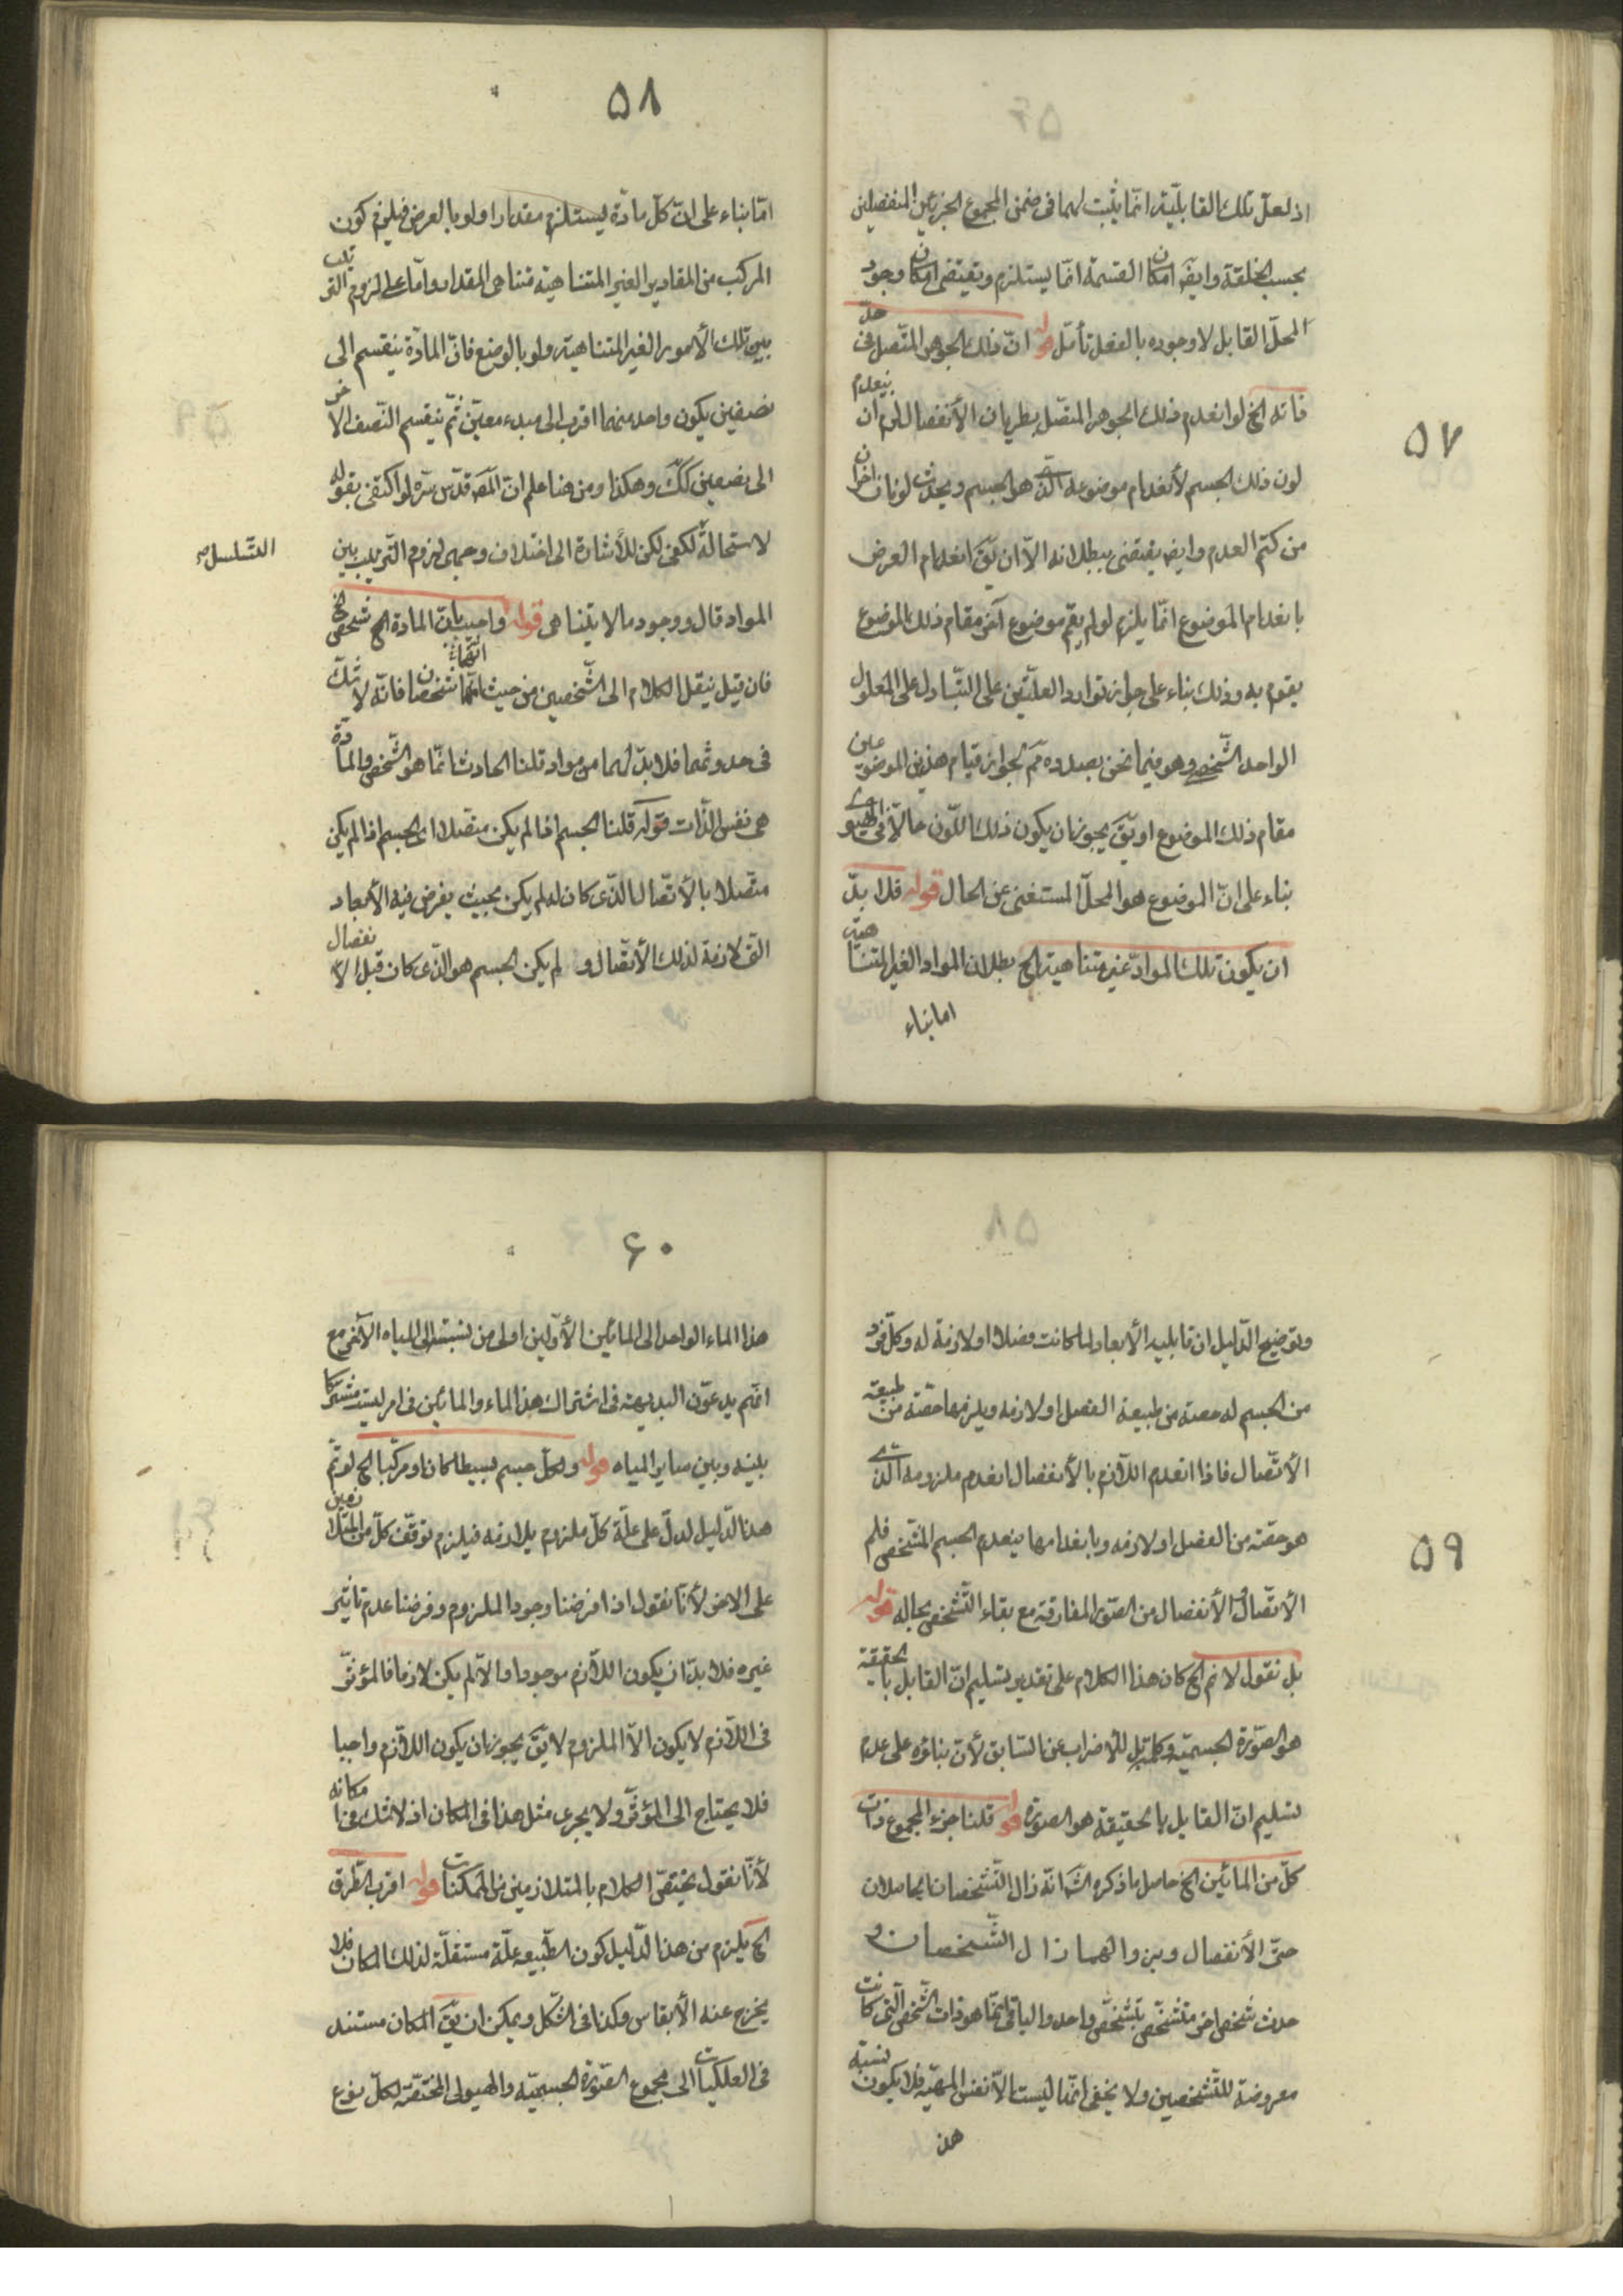 ۵۷
اذ لعلّ تلك القابليّة انّما يثبت لهما فى ضمن المجموع الجزئين المنفصلين
بحسب الخلقة وايضَ امكان القسمة انّما يستلزم ويقتضى امكان وجود
المحلّ القابل لا وجوده بالفعل تأمّل قوله انّ ذلك الجوهر المتّصل فى حدّ
ذاته الخ لو انعدم ذلك الجوهر المتّصل بطريان الأنفصال لزم ان ينعدم
لون ذلك الجسم لأنعدام موضوعه الّذى هو الجسم ويحدث لونان اخران
من كتم العدم وايضَ يقتضى ببطلانه الاّ ان يقَ انعدام العرض
بانعدام الموضوع انّما يلزم لو لم يقم موضوع آخر مقام ذلك الموضوع
يقوم به وذلك بناء على جواز توارد العلّتين على التّبادل على المعلول
الواحد الشّخصى وهو فيما نحن بصدده ثمّ لجواز قيام هذين الموضوعين
مقام ذلك الموضوع او يقَ يجوز ان يكون ذلك اللّون حالاّ فى الهيولى
بناء على انّ الموضوع هو المحلّ المستغنى عن الحال قوله فلا بدّ
ان يكون تلك الموادّ غير متناهية الخ بطلان المواد الغير المتناهية
اما بناء
۵۸
امّا بناء على انّ كلّ مادّة يستلزم مقدارا ولو بالعرض فيلزم كون
المركب من المقادير الغير المتناهية متناهى المقدار وامّا على لزوم الترتيب
بين تلك الأمور الغير المتناهية ولو بالوضع فانّ المادّة ينقسم الى
نصفين يكون واحد منهما اقرب الى مبدء معيّن ثمّ ينقسم النّصف الآخر
الى نصفين ككَ وهكذا ومن هنا علم انّ المصَ قدّس سرّه لو اكتفى بقوله
لاستحالة لكفى لكن للأشارة الى اختلاف وجهى لزوم التّرتيب بين
التّسلسل صح
المواد قال ووجود ما لا يتناهى قوله واجيب بانّ المادة الخ شخصى الخ
فان قيل ينقل الكلام الى الشّخصين من حيث انّهما شخصان فانّه لا شكّ
انّهما
فى حدوثهما فلا بدّ لهما من مواد قلنا الحادث انّما هو الشّخصى والمادّة
هى نفس الذّات قوله قلنا الجسم اذا لم يكن متصلا اى الجسم اذا لم يكن
متّصلا بالأتّصال الذّى كان له لم يكن بحيث يفرض فيه الأبعاد
الّتى لازمة لذلك الأتّصال و لم يكن الجسم هو الذّى كان قبل الانفصال
۵۹
وتوضيح الدّليل ان قابليه الأبعاد لما كانت فصلا او لازمة له وكلّ فرد
من الجسم له حصة من طبيعة الفصل او لازمه ويلزمها حصّة من طبيعة
الأتّصال فاذا انعدم اللّازم بالأنفصال انعدم ملزومه الّذى
هو حصّة من الفصل او لازمه وبانعدامها ينعدم الجسم المشخصى فلم
الأتّصال والأنفصال من الصّور المفارقة مع بقاء التّشخص بحاله قوله
بل نقول لا نم الخ كان هذا الكلام على تقدير تسليم انّ القابل بالحقيقة
هو الصّورة الجسميّة وكلمة بل للأضراب عن السّابق لأنّ بنائه على عدم
تسليم انّ القابل بالحقيقة هو الصورة قوله قلنا جزء المجموع ذات
كلّ من المائين الخ حاصل ما ذكره الشَ انّه زال التّشخصان الحاصلان
حتّى الأنفصال وبزوالهما زال الشّخصان و
حدث شخص اخر متشخّص بتشخّص واحد والباقى انّما هو ذات الشّخص الّتى كانت
معروضة للتّشخصين ولا يخفى انّها ليست الاّ نفس المهيّة فلا يكون نسبة
هذ
۶۰
هذا الماء الواحد الى المائين الأوّلين اولى من نسبته الى المياه الأخر مع
انّهم يدعون البديهة فى اشتراك هذا الماء والمائين فى امر ليست مشتركا
بينه وبين ساير المياه قوله ولكلّ جسم بسيطا كان او مركّبا الخ لو تمّ
هذا الدّليل لدلّ على علّة كلّ ملزوم بلازمه فيلزم توقّف كلّ من المتلازمين
على الاخر لأنّا نقول اذا فرضنا وجود الملزوم وفرضنا عدم تأثير
غيره فلا بدّ ان يكون اللّازم موجودا والاّ لم يكن لازما فالمؤثّر
فى اللّازم لا يكون الاّ الملزوم لا يقَ يجوز ان يكون اللّازم واجبا
فلا يحتاج الى المؤثّر ولا يجرى مثل هذا فى المكان اذ لا شك فى امكانه
لأنّا نقول يختصّ الكلام بالمتلازمين من الممكنات قوله اقرب الطّرق
الخ يلزم من هذا الدّليل كون الطّبيعه علّة مستقلّة لذلك المكان فلا
يخرج عنه الأبقاسر وكذا فى الشّكل ويمكن ان يقَ المكان مستند
فى الفلكيّات الى مجموع الصّورة الجسميّة والهيولى المختصّة لكلّ نوع